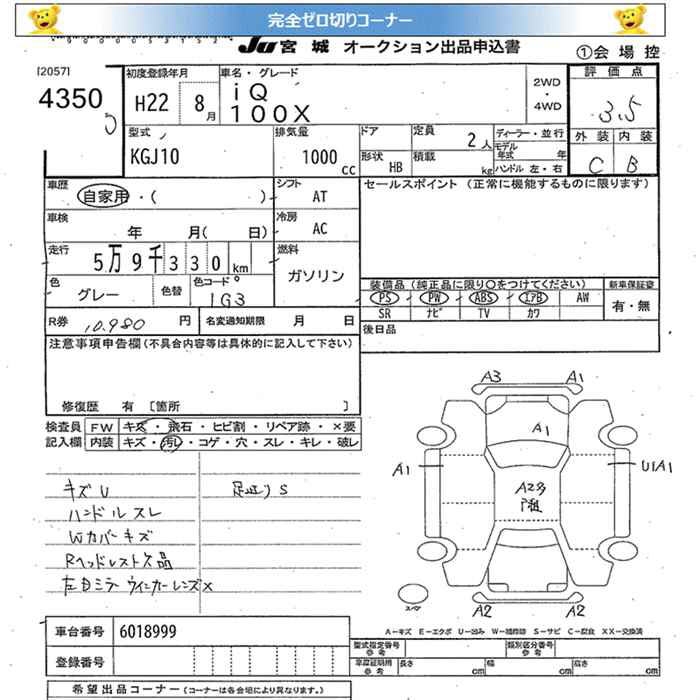 完全ゼロ切りコーナー
JU 宮城 オークション出品申込書 ①会場控
[2057]
4350
初度登録年月
H22 8月
車名・グレード
iQ
100X
2WD
・
4WD
評価点
3.5
型式
KGJ10
排気量
1000cc
ドア
定員 2人
ディーラー・並行
モデル年式 年
形状 HB
積載 kg
ハンドル 左・右
外装 内装
C B
車歴
自家用・( )
シフト
AT
セールスポイント (正常に機能するものに限ります)
車検
年 月( 日)
冷房
AC
走行
5万9千330km
燃料
ガソリン
色
グレー
色替
色コード
1G3
装備品(純正品に限り○をつけてください)
新車保証書
PS PW ABS エアB AW
有・無
SR ナビ TV カワ
R券 10,980 円
名変通知期限 月 日
後日品
注意事項申告欄(不具合内容等は具体的に記入して下さい)
修復歴 有 〔箇所 〕
検査員 FW キズ・飛石・ヒビ割・リペア跡・×要
記入欄 内装 キズ・汚レ・コゲ・穴・スレ・キレ・破レ
キズU
ハンドルスレ
Wカバーキズ
Rヘッドレスト欠品
左ドミラーウィンカーレンズ×
足廻りS
A3 A1
A1
A1 U1A1
A2多
A2 A2
スペア
A-キズ E-エクボ U-凹み W-補修跡 S-サビ C-腐食 XX-交換済
車台番号 6018999
登録番号
型式指定番号 参考
類別区分番号 参考
車庫証明用 参考
長さ cm 幅 cm 高さ cm
希望出品コーナー(コーナーは各会場により異なります。)